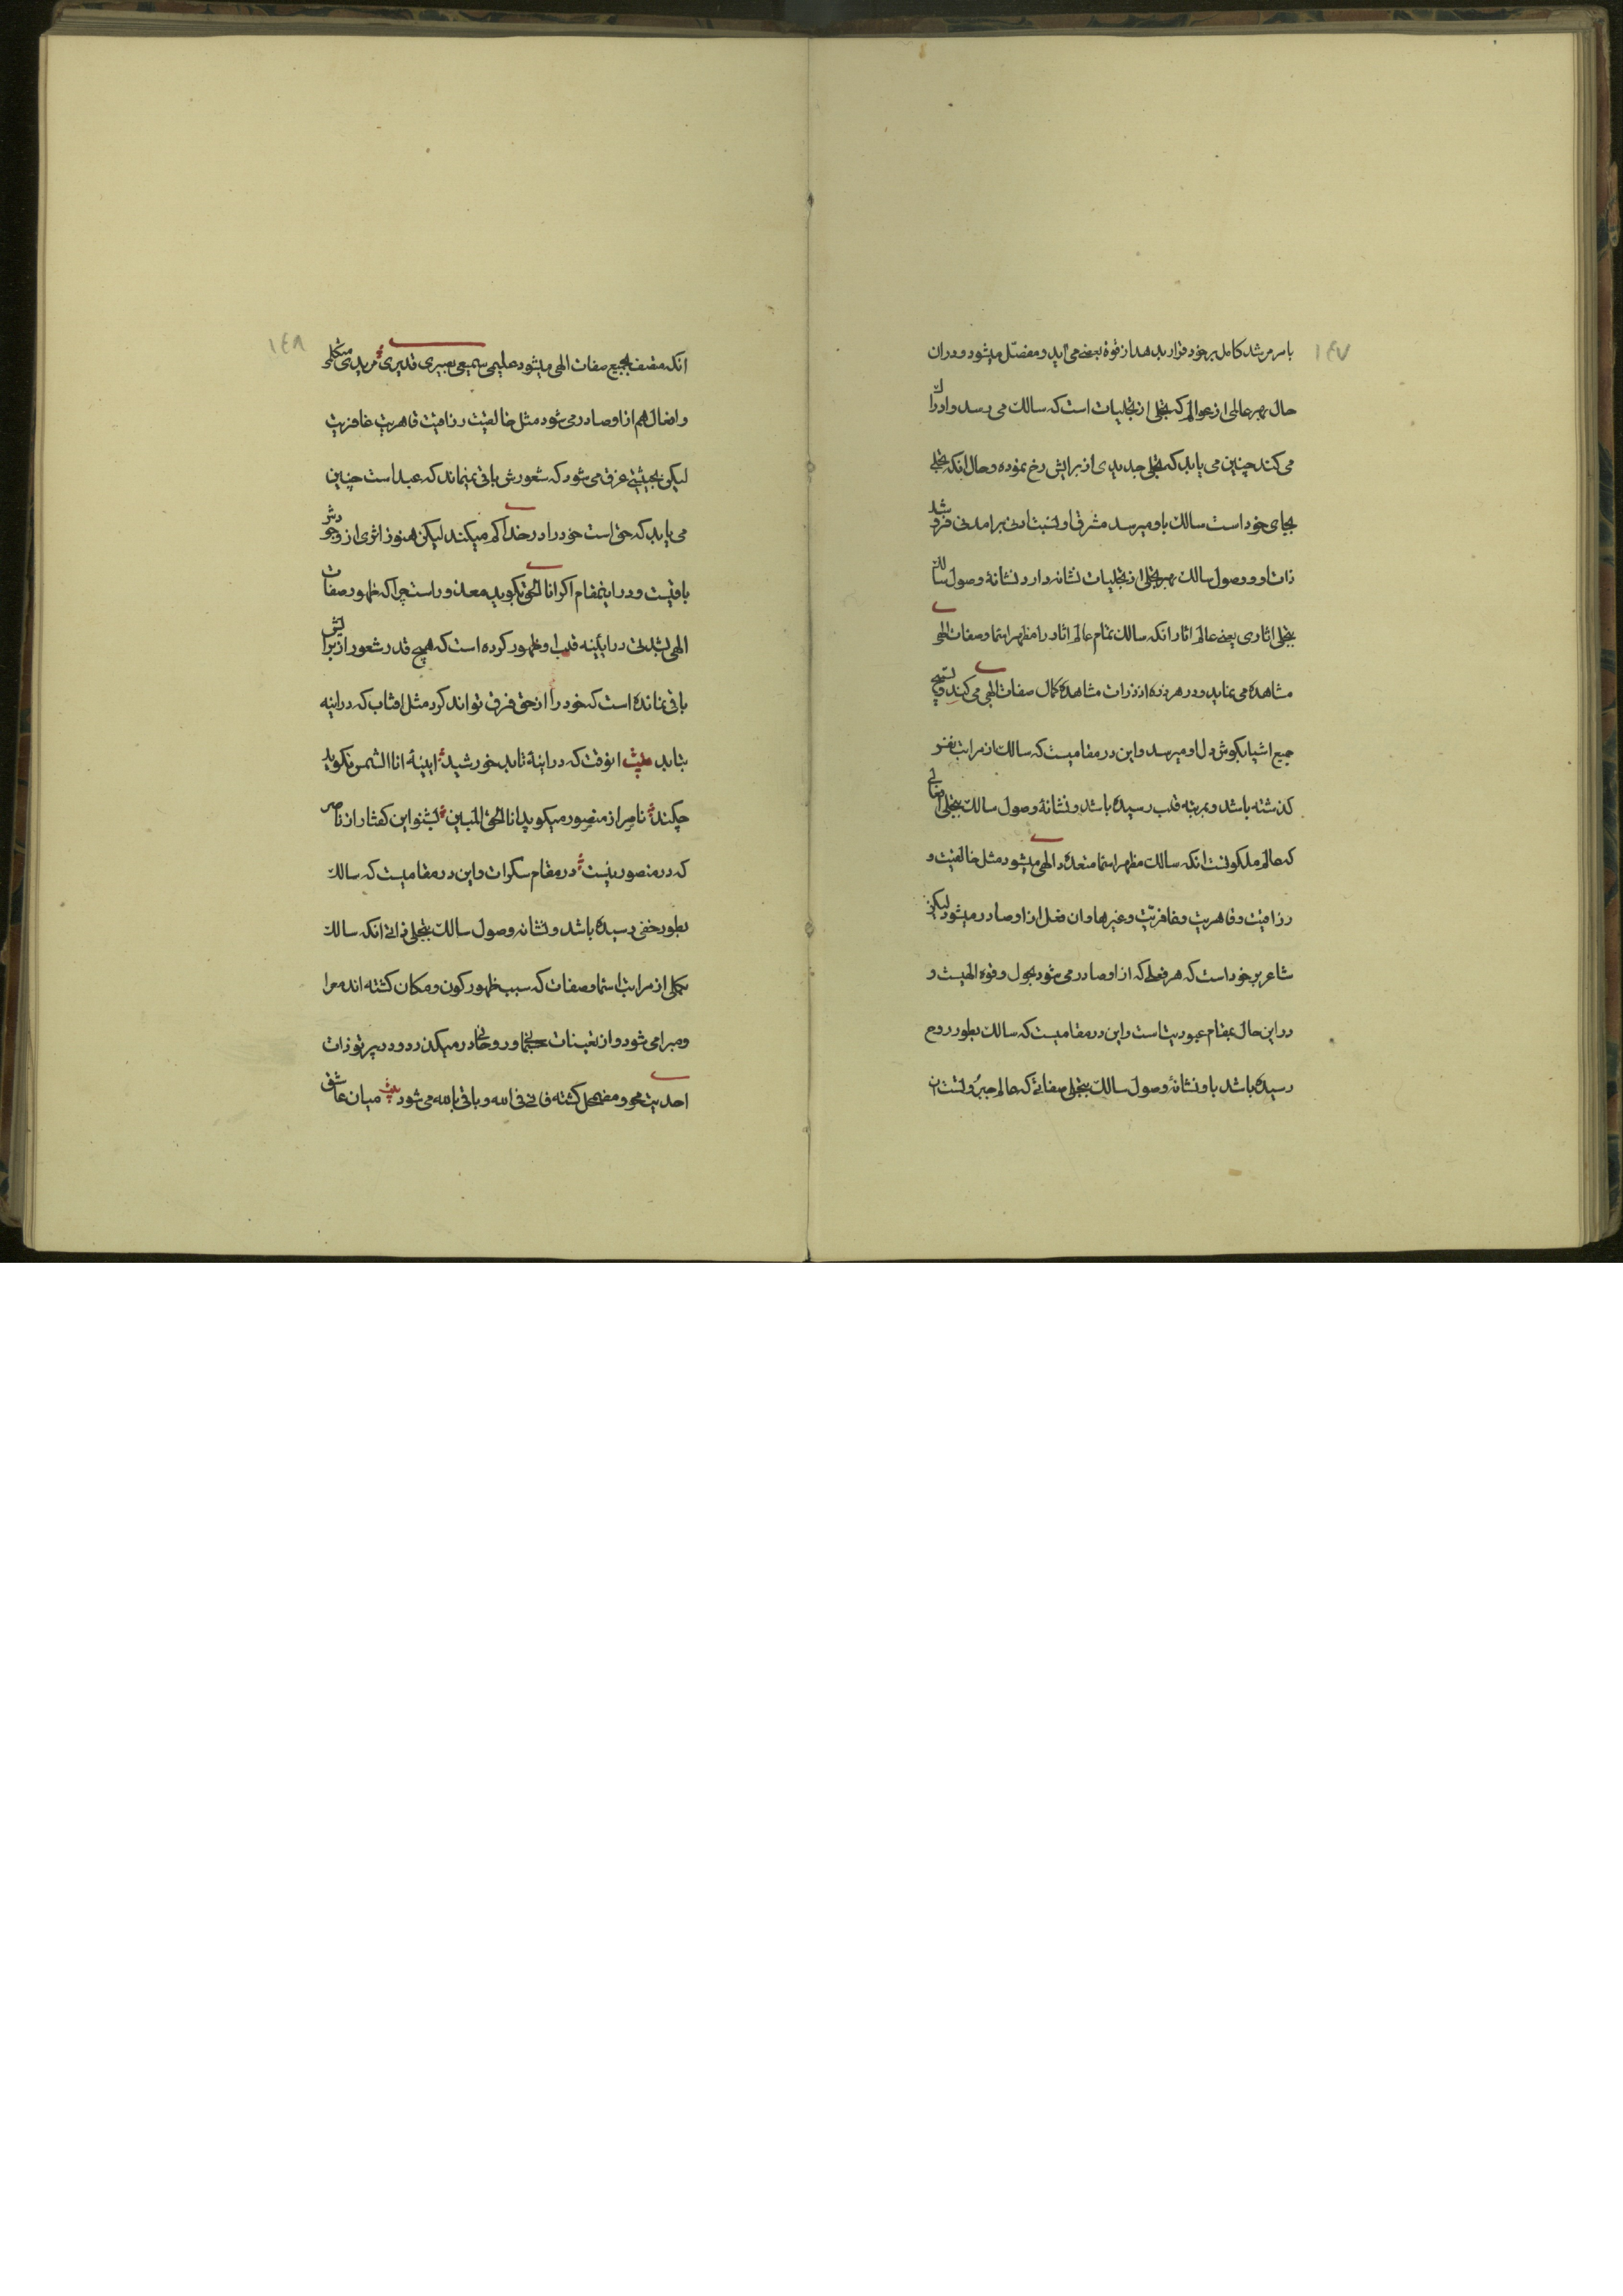 ۱۴۷
بامر مرشد کامل بر خود قرار بدهد از قوة بفعل می آید و مفصّل میشود و در ان
حال بهر عالمی از عوالم که تجلی از تجلیات است که سالک می رسد و ادراک
می کند چنین می یابد که تجلی جدیدی از برایش رخ نموده و حال انکه تجلی
بجای خود است سالک باو میرسد مشرق او نسبت ادنی برامدنی فروشد
ذات او و وصول سالک بهر تجلی از تجلیات نشانه دارد نشانهٔ وصول سالک
بتجلی اثاری یعنی عالم اثار انکه سالک تمام عالم اثار را مظهر اسما و صفات الهی
مشاهده می نماید و در هر ذره از ذرات مشاهدهٔ کمال صفات الهی می کند و تسبیح
جمیع اشیا بکوش دل او میرسد و این در مقامیست که سالک از مراتب نفس
کذشته باشد و بمرتبه قلب رسیده باشد و نشانهٔ وصول سالک بتجلی افعالی
که عالم ملکوتست انکه سالک مظهر اسما متعددهٔ الهی میشود مثل خالقیت و
رزاقیت و قاهریت و غافریّت و غیرها و ان فعل از او صادر میشود لیکن
شاعر بر خود است که هر فعلی که از او صادر می شود بحول و قوه الهیست و
در این حال بمقام عبودیت است و این در مقامیست که سالک بطور روح
رسیده باشد باو نشانهٔ وصول سالک بتجلی صفاتی که عالم جبروتست ان
۱۴۸
انکه متصف بجمیع صفات الهی میشود علیمی سمیعی بصیری قدیری مریدی متکلمی
و افعال هم از او صادر می شود مثل خالقیت رزاقیت قاهریت غافریت
لیکن بحیثیتی غرق می شود که شعورش باقی نمیماند که عبد است چنین
می یابد که حق است خود را در خدا کم میکند لیکن هنوز اثری از وجودش
باقیست و در اینمقام اکر انا الحق بکوید معذور است چرا که ظهور صفات
الهی بشدتی در ایئینه قلب او ظهور کرده است که هیچ قدر شعور از برایش
باقی نمانده است که خود را از حق فرق تواند کرد مثل افتاب که در اینه
بتابد بیت انوقت که در اینهٔ تابد خورشید اینهٔ انا الشمس نکوید
چکند ناصر از منصور میکوید انا الحق المبین بشنو این کفتار از ناصر
که در منصور نیست در مقام سکرات و این در مقامیست که سالک
بطور خفی رسیده باشد و نشانه وصول سالک بتجلی ذاتی انکه سالک
بکلی از مراتب اسما و صفات که سبب ظهور کون و مکان کشته اند معرا
و مبرا می شود و از تعینات جسمانی و روحانی در میکذرد و در پرتو ذات
احدیت محو و مضمحل کشته فانی فی الله و باقی بالله می شود بیت میان عاشق